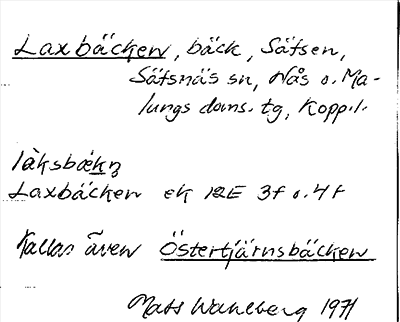 Laxbäcken, bäck, Säfsen,
Säfsnäs sn, Nås o. Ma-
lungs doms. tg, Kopp. l.
làksbækn̥
Laxbäcken ek 12E 3f o. 4f
Kallas även Östertjärnsbäcken
Mats Wahlberg 1971